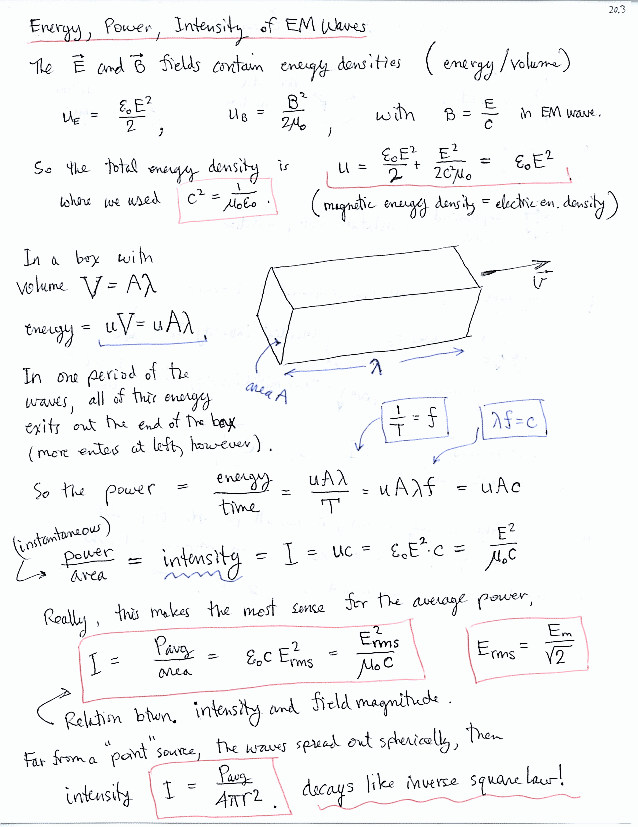 20.3
Energy, Power, Intensity of EM Waves
The E⃗ and B⃗ fields contain energy densities (energy/volume)
u_E = ε₀E²/2 , u_B = B²/2μ₀ , with B = E/c in EM wave.
So the total energy density is u = ε₀E²/2 + E²/2c²μ₀ = ε₀E²
where we used c² = 1/μ₀ε₀ . (magnetic energy density = electric en. density)
In a box with
volume V = Aλ
energy = uV = uAλ
v⃗
λ
area A
In one period of the
waves, all of this energy
exits out the end of the box
(more enters at left, however).
1/T = f
λf = c
So the power = energy/time = uAλ/T = uAλf = uAc
(instantaneous)
power/area = intensity = I = uc = ε₀E²·c = E²/μ₀c
Really, this makes the most sense for the average power,
I = Pavg/area = ε₀c E²rms = E²rms/μ₀c
Erms = Em/√2
Relation btwn. intensity and field magnitude.
Far from a "point" source, the waves spread out spherically, then
intensity I = Pavg/4πr² . decays like inverse square law!